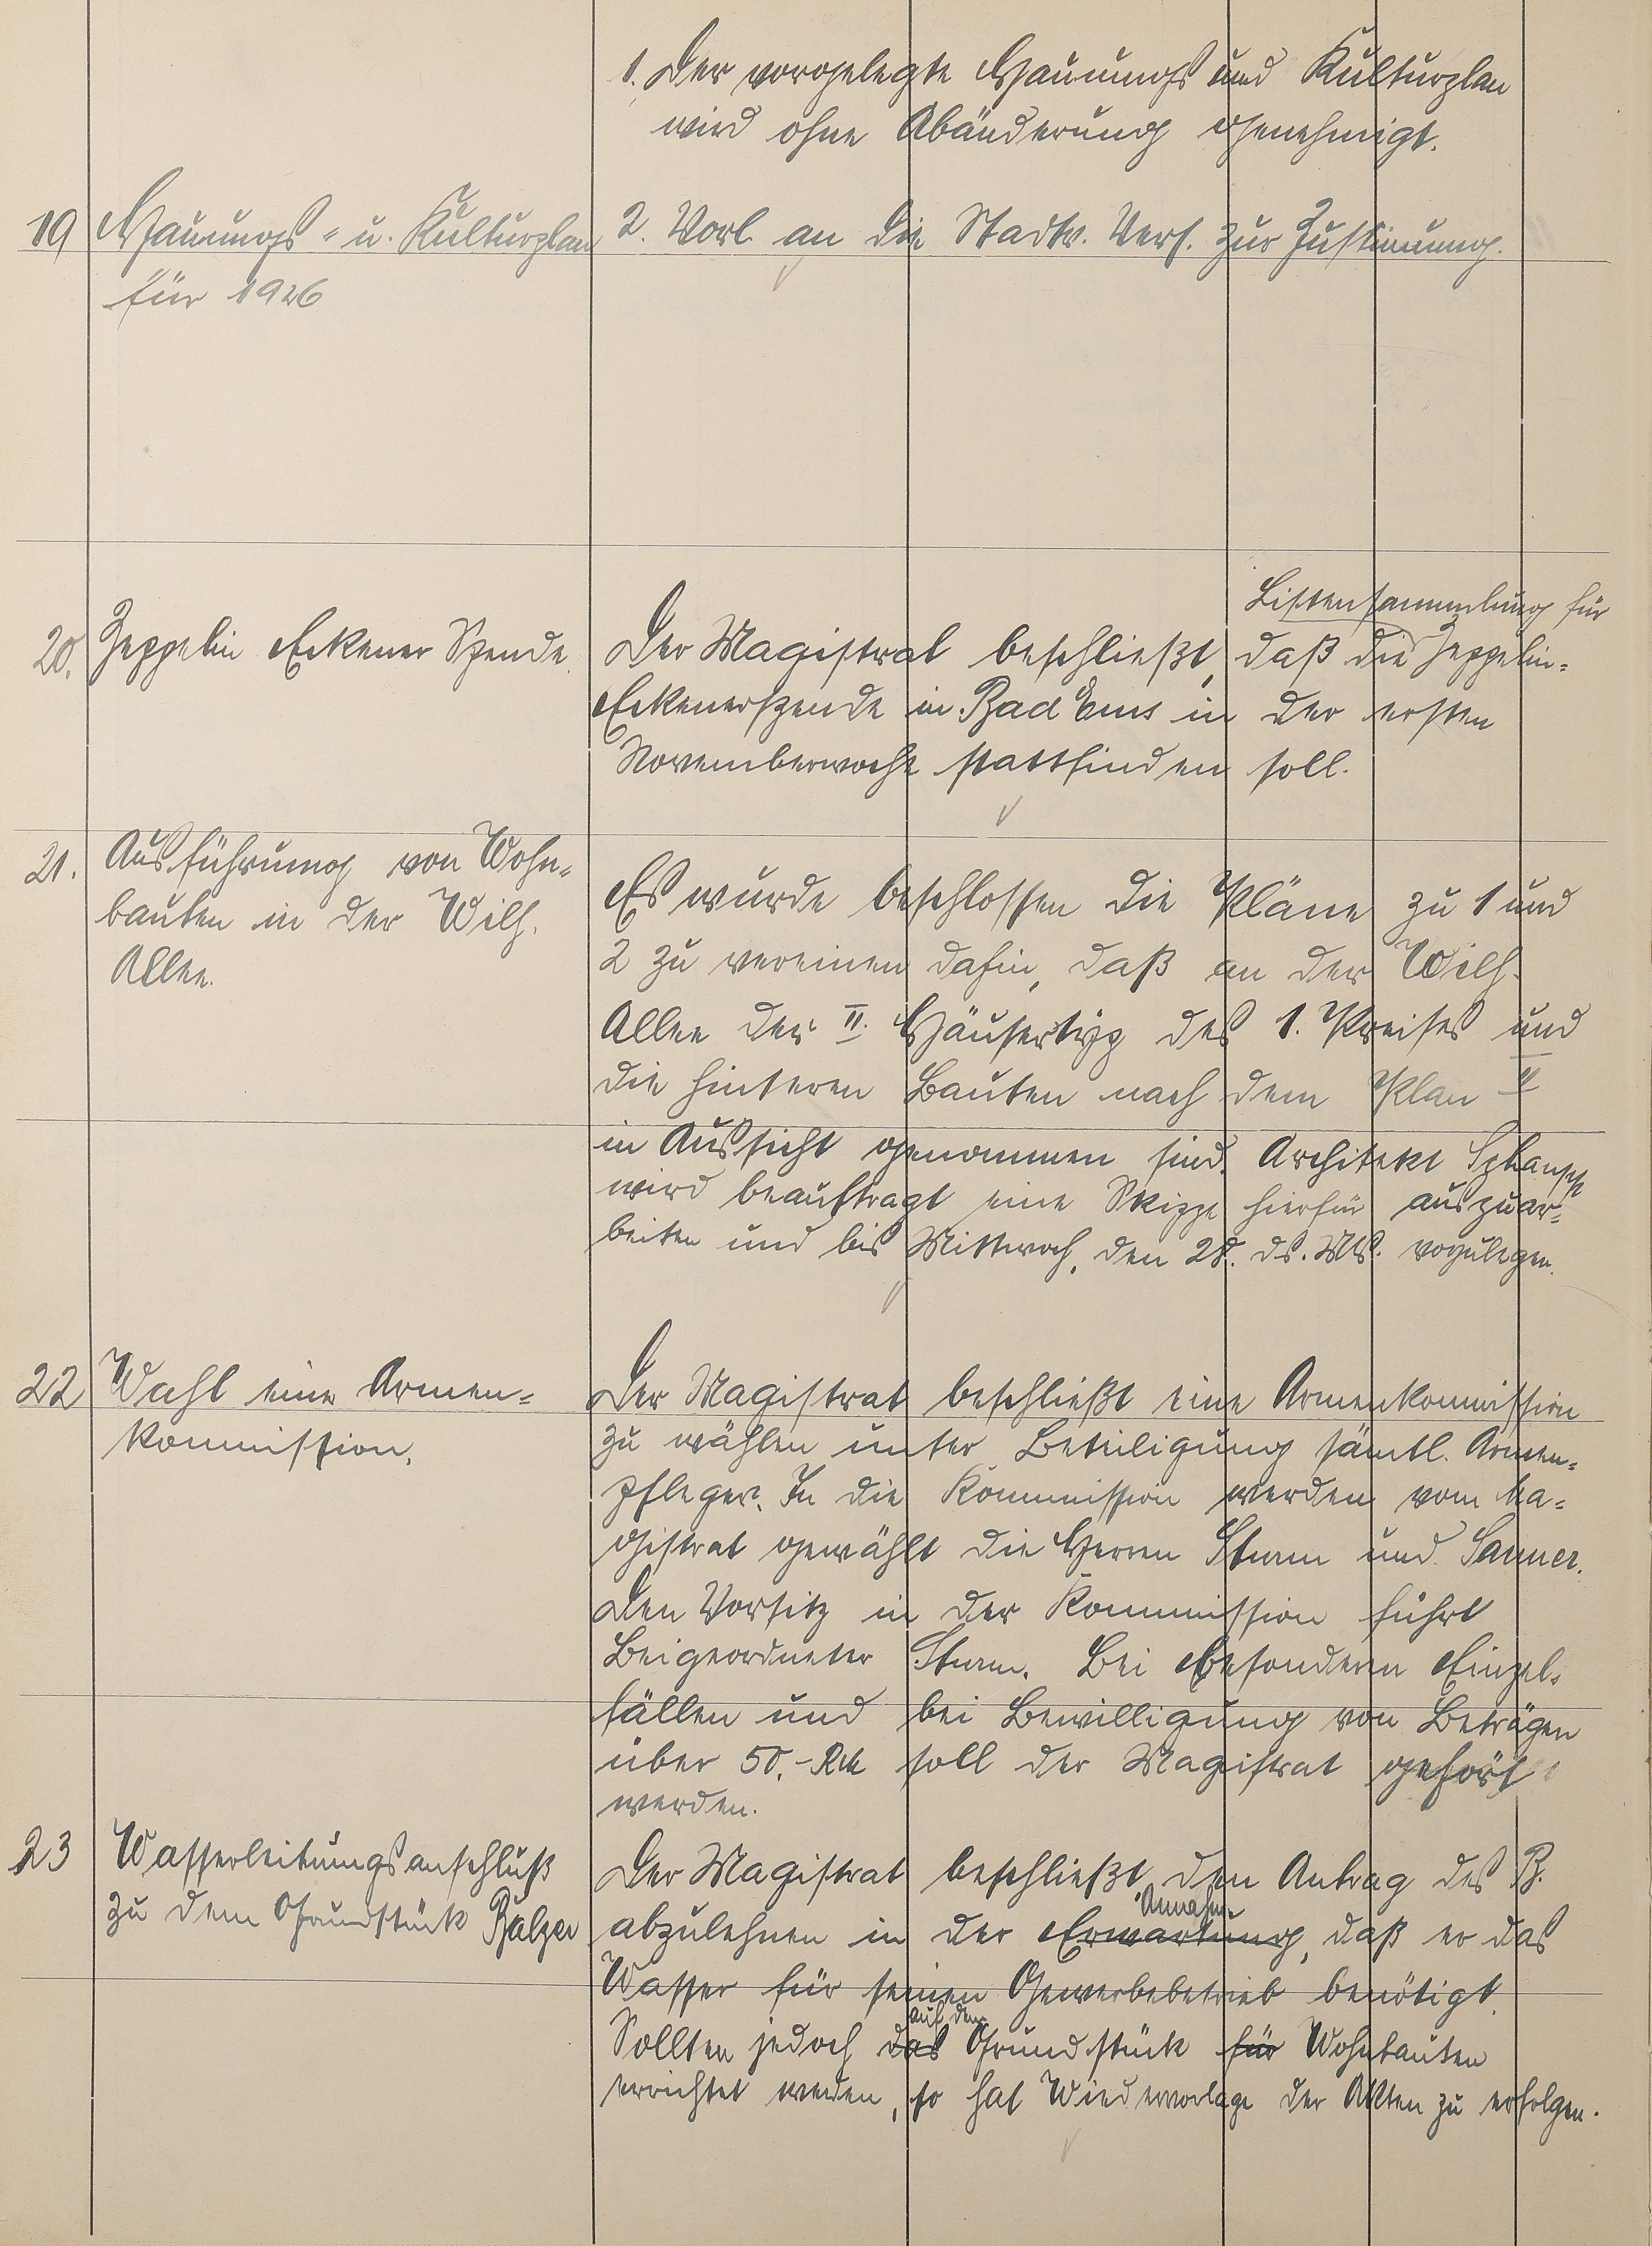 1. Der vorgelegte Hauungs und Kulturplan
wird ohne Abänderung genehmigt.
19 Hauungs- u. Kulturplan
für 1926
2. Vorl. an die Stadtv. Vers. zur Zustimmung.
20. Zeppelin Eckener Spende.
Listensammlung für
Der Magistrat beschließt, daß die Zeppelin-
Eckenerspende in Bad Ems in der ersten
Novemberwoche stattfinden soll.
21. Ausführung von Wohn-
bauten in der Wilh.
Allee.
Es wurde beschlossen die Pläne zu 1 und
2 zu vereinen dahin, daß an der Wilh.
Allee der II. Häusertyp des 1. Preises und
die hinteren Bauten nach dem Plan II
in Aussicht genommen sind. Architekt
wird beauftragt eine Skizze hierfür auszuar-
beiten und bis Mittwoch, den 28. ds. Mts. vorzulegen.
22 Wahl einer Armen-
kommission.
Der Magistrat beschließt eine Armenkommission
zu wählen unter Beteiligung sämtl. Armen-
pfleger. In die Kommission werden vom Ma-
gistrat gewählt die Herren Sturm und Sanner.
Den Vorsitz in der Kommission führt
Beigeordneter Sturm. Bei besonderen Einzel-
fällen und bei Bewilligung von Beträgen
über 50.- RM soll der Magistrat gehört
werden.
23 Wasserleitungsanschluß
zu dem Grundstück Balzer
Der Magistrat beschließt den Antrag des B.
Annahme
abzulehnen in der Erwartung, daß er das
Wasser für seinen Gewerbebetrieb benötigt.
auf dem
Sollten jedoch das Grundstück für Wohnbauten
errichtet werden, so hat Wiedervorlage der Akten zu erfolgen.